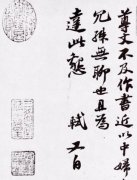 尊丈不及作書近以中婦
兄殊無聊也且為
達此懇 軾又白